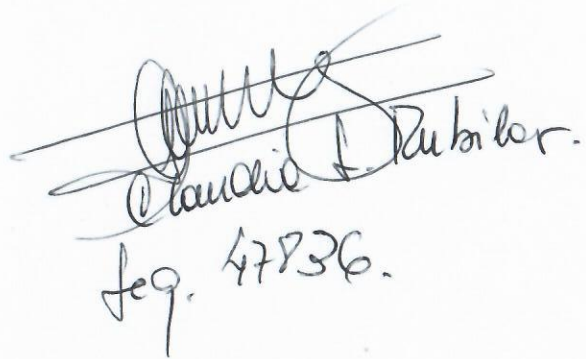 Claudia F. Rubilar.
Leg. 47836.